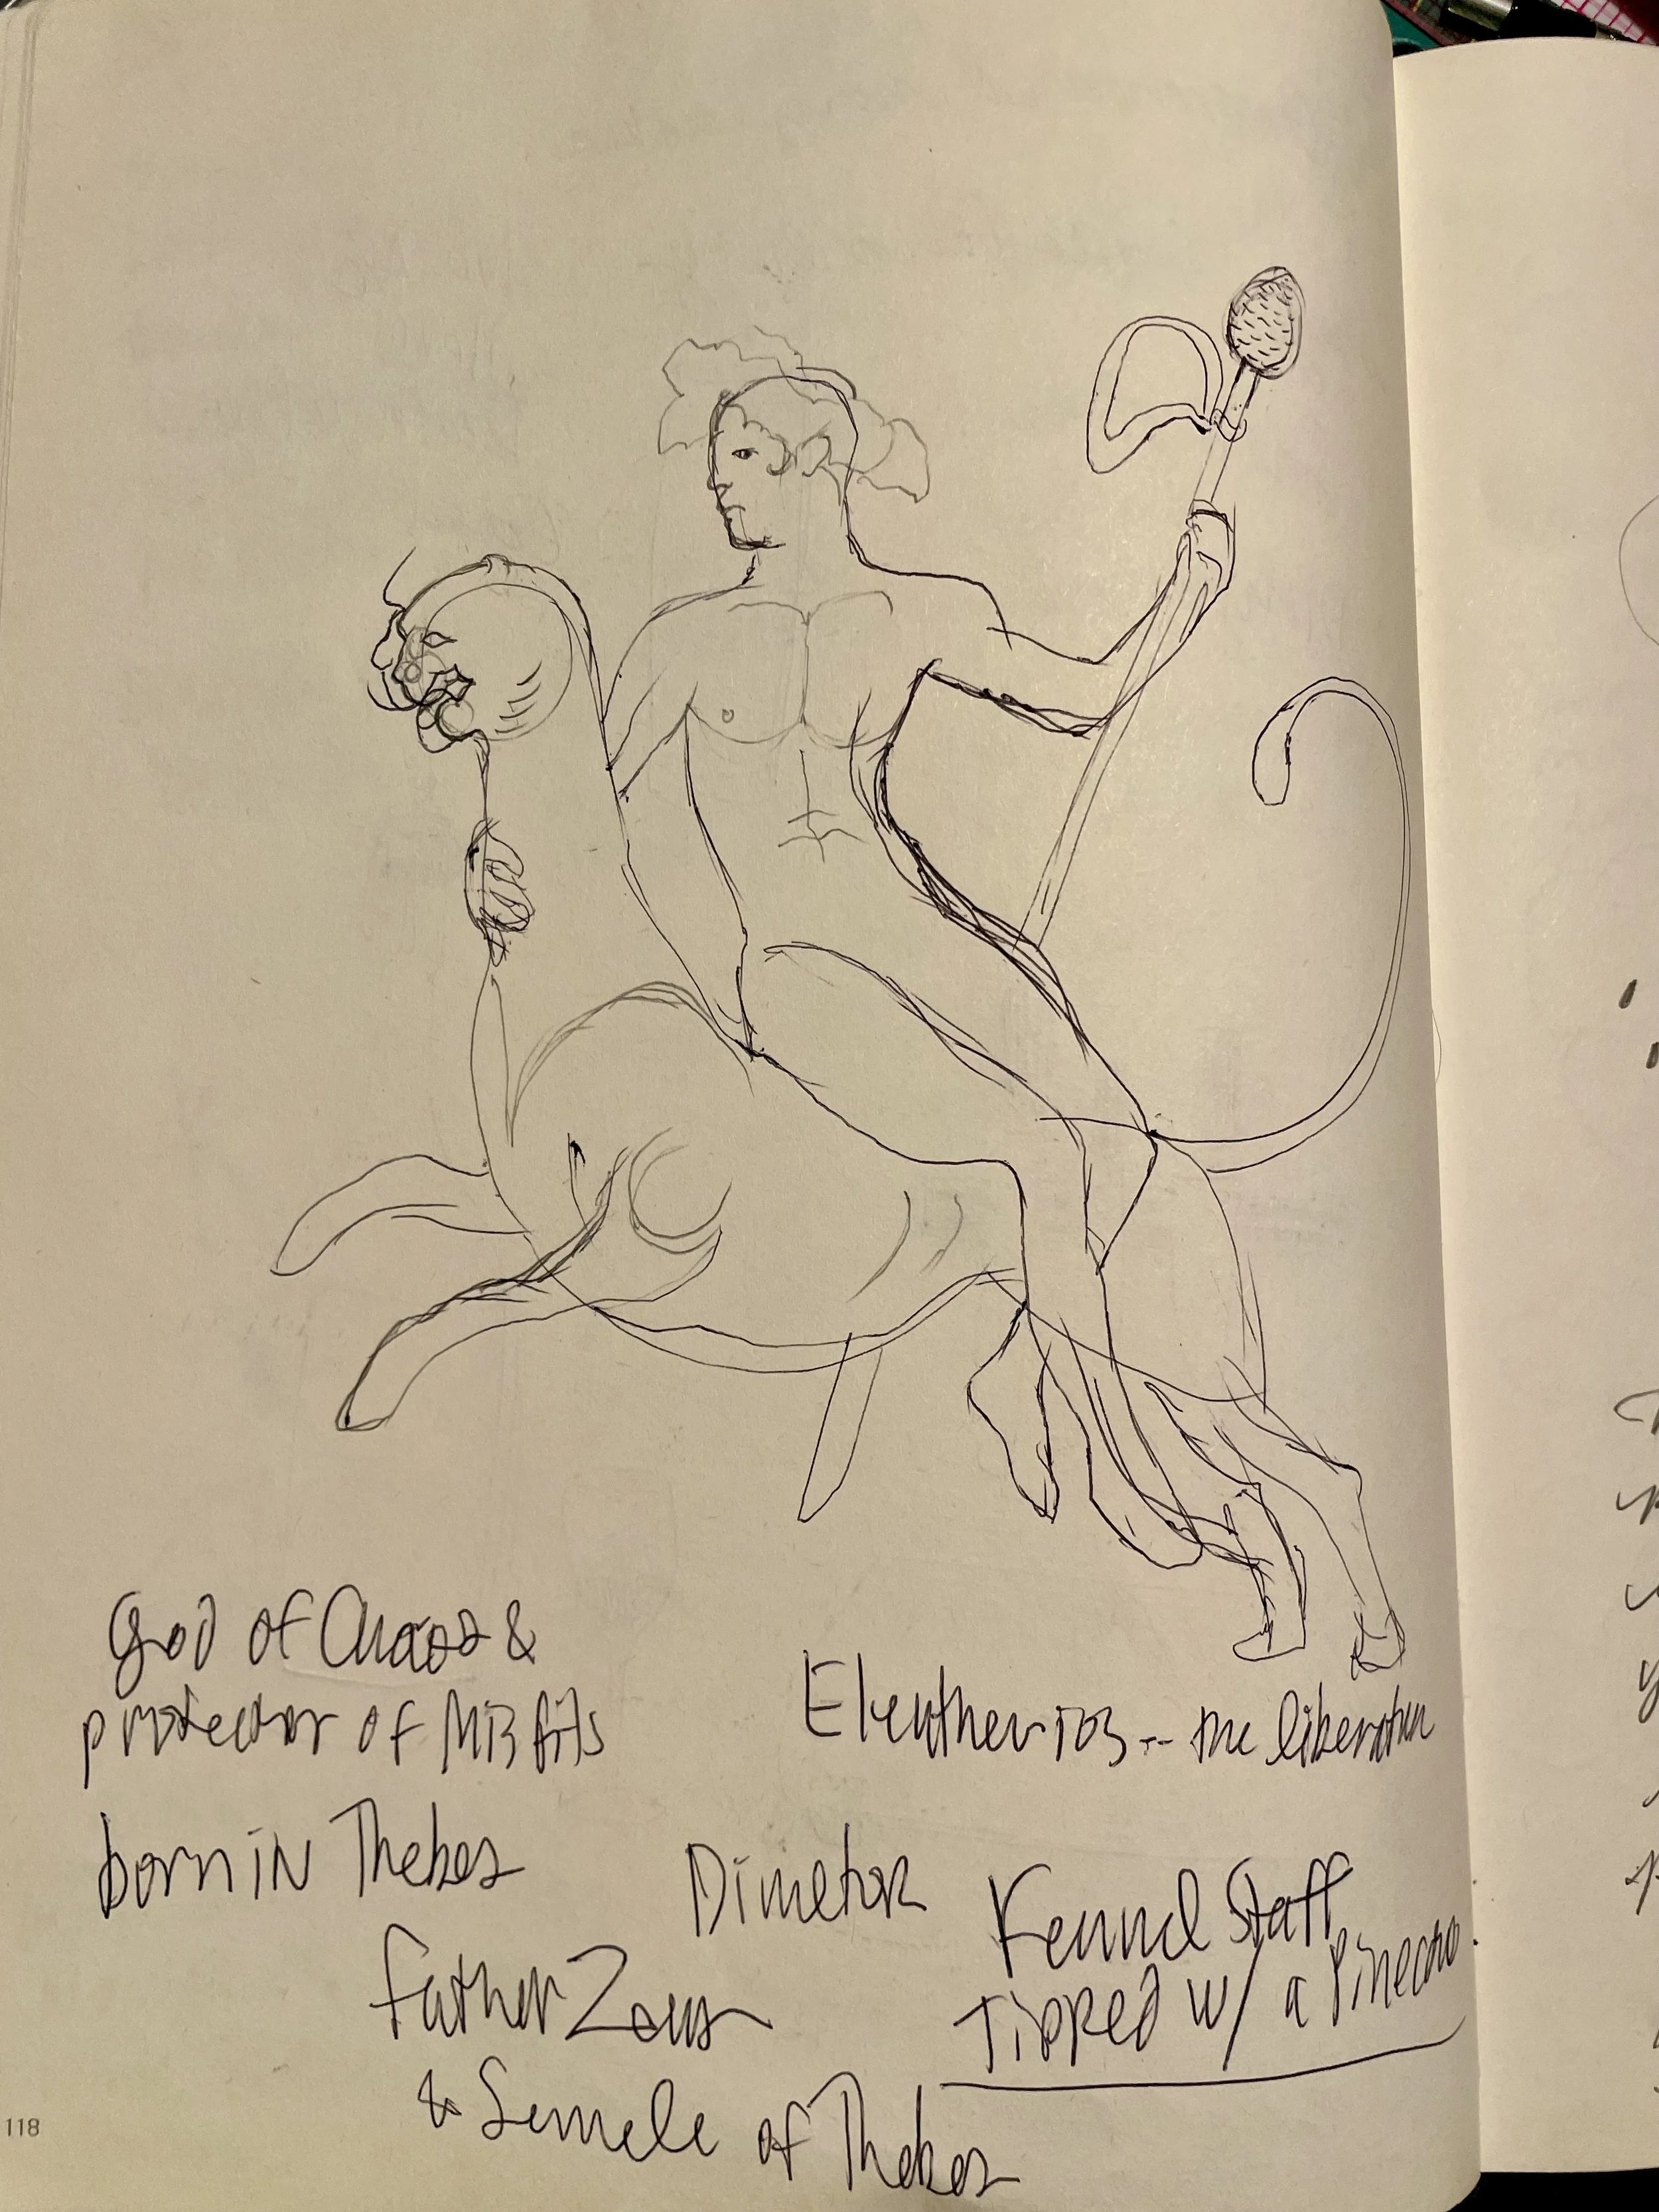 God of Chaos &
protector of Misfits
born in Thebes
Father Zeus
& Semele of Thebes
Eleutherios -- the liberator
Dimetor
Fennel Staff
Tipped w/ a Pinecone.
118